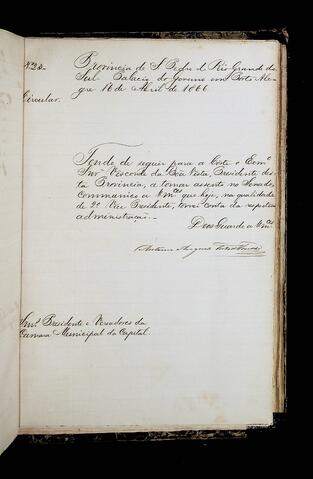 Nº 23.
Provincia de S. Pedro do Rio Grande do
Sul Palacio do Governo em Porto Ale-
gre 16 de Abril de 1866
Circular.
Tendo de seguir para a Corte o Exmº
Snrº Visconde da Boa Vista, Presidente des-
ta Provincia, a tomar assento no Senado,
Communico a Vmces que hoje, na qualidade
de 2º Vice Presidente, tomei conta da respectiva
administração.
Deos Guarde a Vmces
Antonio Augusto
Snrs. Presidente e Vereadores da
Camara Municipal da Capital.